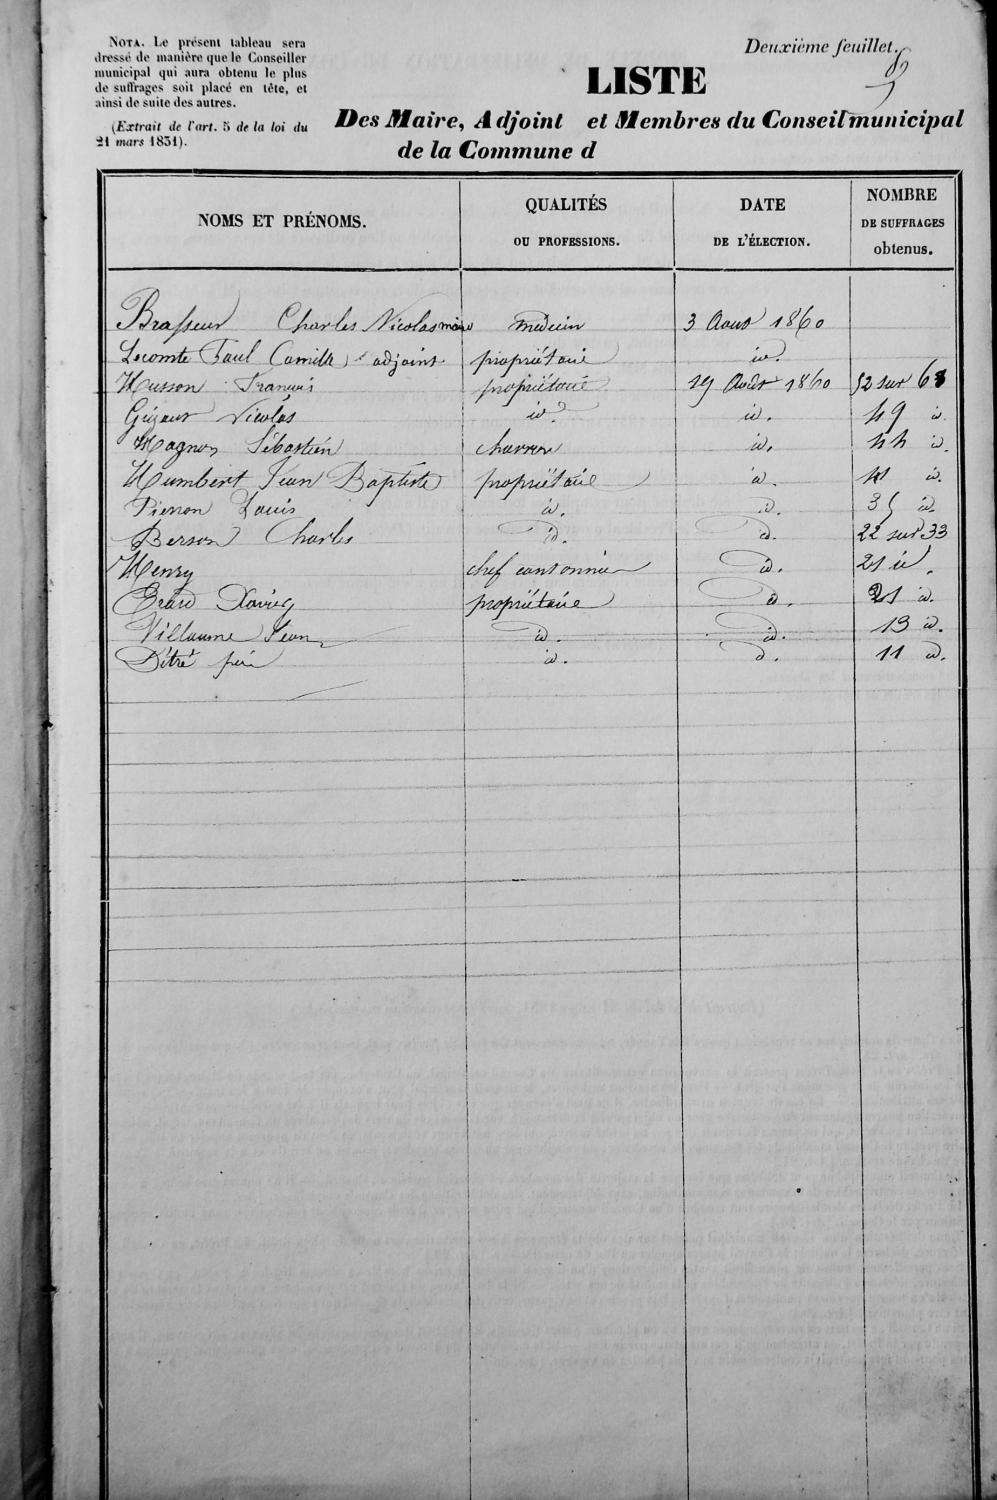 NOTA. Le présent tableau sera
dressé de manière que le Conseiller
municipal qui aura obtenu le plus
de suffrages soit placé en tête, et
ainsi de suite des autres.
(Extrait de l'art. 5 de la loi du
21 mars 1831).
Deuxième feuillet.
LISTE
Des Maire, Adjoint et Membres du Conseil municipal
de la Commune d
NOMS ET PRÉNOMS. QUALITÉS OU PROFESSIONS. DATE DE L'ÉLECTION. NOMBRE DE SUFFRAGES obtenus.
Brasseur Charles Nicolas maire médecin 3 Aout 1860
Lecomte Paul Camille adjoint propriétaire id.
Husson François propriétaire 19 Août 1860 52 sur 68
Nicolas id id. 49 id.
Magnon Sébastien charron id. 44 id.
Humbert Jean Baptiste propriétaire id. 41 id.
Pierron Louis id. id. 35 id.
Berson Charles id. id. 22 sur 33
Henry chef cantonnier id. 21 id.
Erard Xavier propriétaire id. 21 id.
Villaume Jean id. id. 13 id.
Détré père id. id. 11 id.